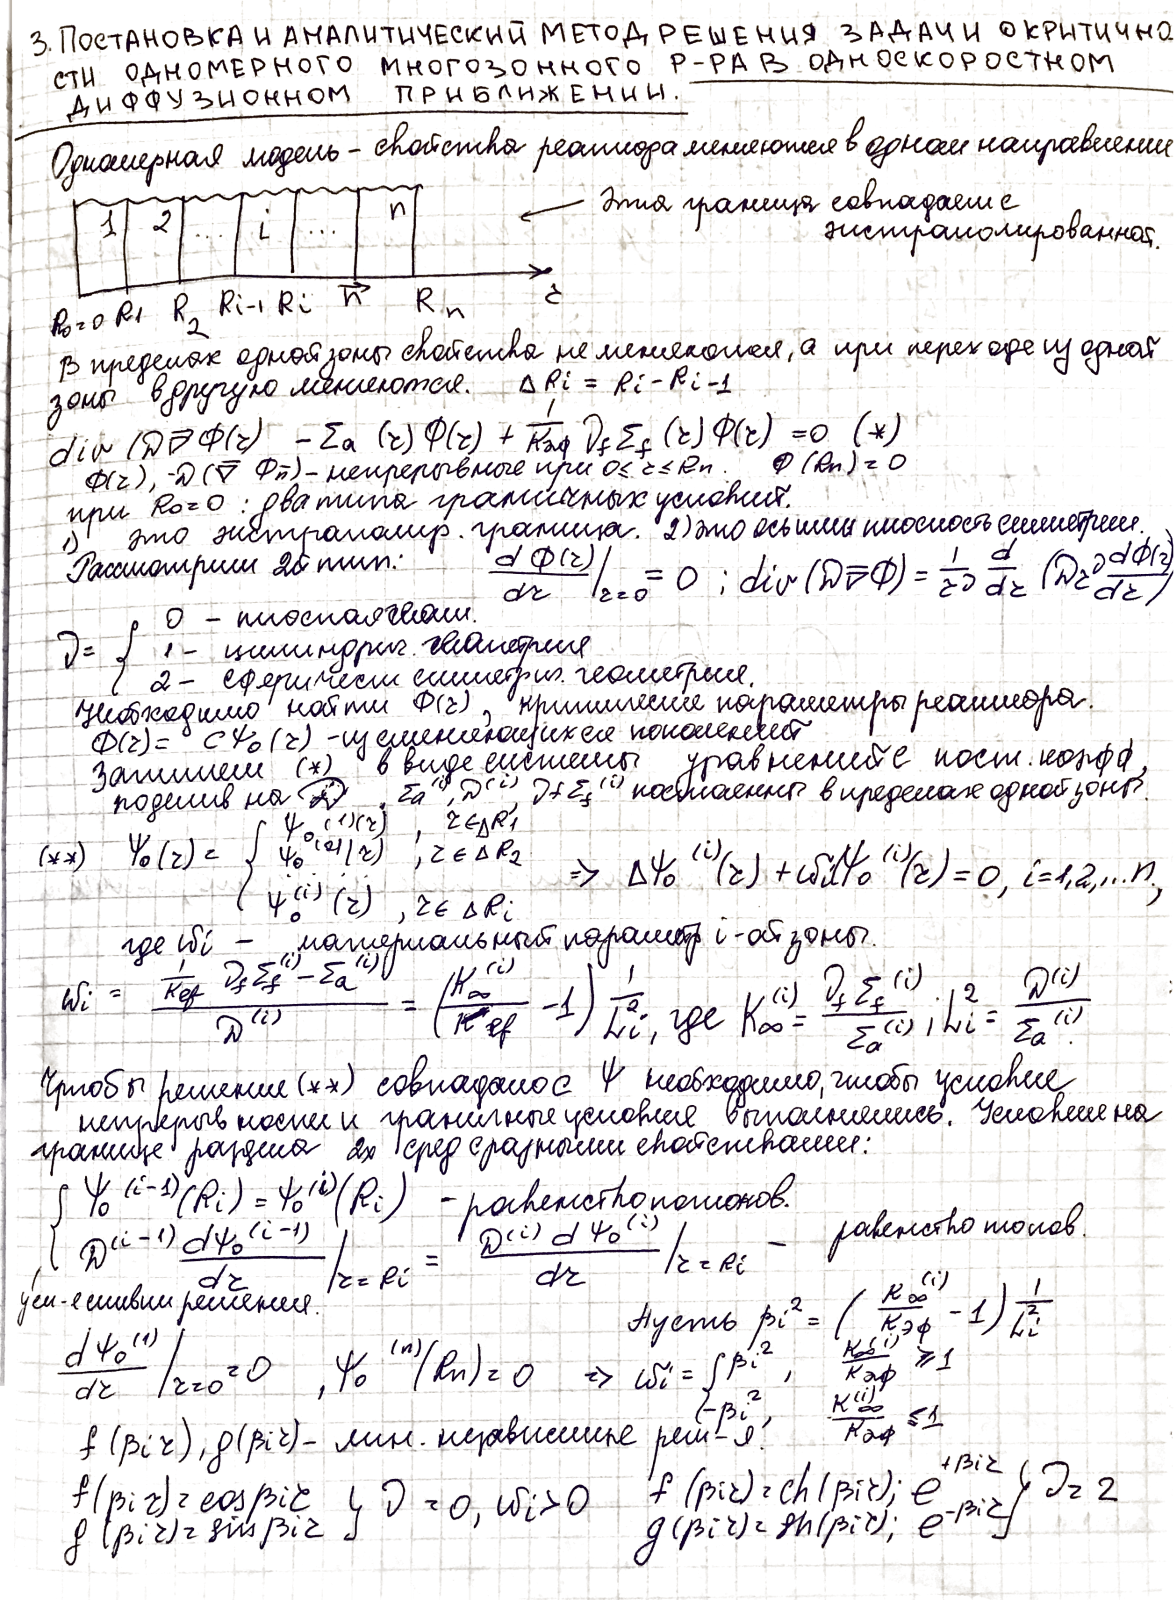 3. ПОСТАНОВКА И АНАЛИТИЧЕСКИЙ МЕТОД РЕШЕНИЯ ЗАДАЧИ О КРИТИЧНО
СТИ ОДНОМЕРНОГО МНОГОЗОННОГО Р-РА В ОДНОСКОРОСТНОМ
ДИФФУЗИОННОМ ПРИБЛИЖЕНИИ.
Одномерная модель – свойства реактора меняются в одном направлении
1 2 ... i ... n ← Эта граница совпадает с
экстраполированной.
R₀=0 R1 R₂ Ri-1 Ri n⃗ Rn r
В пределах одной зоны свойства не меняются, а при переходе из одной
зоны в другую меняются. ΔRi = Ri – Ri-1
div (D∇Φ(r) – Σa (r) Φ(r) + 1/Kэф νf Σf (r) Φ(r) = 0 (*)
Φ(r), -D(∇ Φn̄) – непрерывные при 0 ≤ r ≤ Rn. Φ(Rn) = 0
при R₀=0 : два типа граничных условий.
1) это экстраполир. граница. 2) это ось или плоскость симметрии.
Рассмотрим 2й тип: dΦ(r)/dr |r=0 = 0 ; div (D∇Φ) = 1/r^ν d/dr (D r^ν dΦ(r)/dr)
ν = { 0 – плоская геом.
1 – цилиндрич. геометрия
2 – сферически симметрич. геометрия.
Необходимо найти Φ(r), критические параметры реактора.
Φ(r) = CΨ₀(r)
Запишем (*) в виде системы уравнений с пост. коэфф,
поделив на D, Σa^(i), D^(i), νf Σf^(i) постоянны в пределах одной зоны.
(**) Ψ₀(r) = { Ψ₀^(1)(r), r∈ΔR1
Ψ₀^(2)(r), r∈ΔR₂
. . . . .
Ψ₀^(i)(r), r∈ΔRi
⇒ ΔΨ₀^(i)(r) + æiΨ₀^(i)(r) = 0, i=1,2,...n,
где æi – материальный параметр i-ой зоны.
æi = (1/Kef νf Σf^(i) – Σa^(i)) / D^(i) = (K∞^(i)/Kef – 1) 1/Li², где K∞^(i) = νf Σf^(i)/Σa^(i); Li² = D^(i)/Σa^(i).
Чтобы решение (**) совпадало с Ψ необходимо, чтобы условие
непрерывности и граничные условия выполнялись. Условие на
границе раздела 2х сред с разными свойствами:
{ Ψ₀^(i-1)(Ri) = Ψ₀^(i)(Ri) – равенство потоков.
D^(i-1) dΨ₀^(i-1)/dr |r=Ri = D^(i) dΨ₀^(i)/dr |r=Ri – равенство токов.
усл-е сшивки решения.
Пусть βi² = (K∞^(i)/Kэф – 1) 1/Li²
dΨ₀^(1)/dr |r=0 = 0, Ψ₀^(n)(Rn) = 0 ⇒ æi = { βi², K∞^(i)/Kэф ≥ 1
-βi², K∞^(i)/Kэф ≤ 1
f(βir), g(βir) – лин. независимые реш-я.
f(βir) = cosβir
g(βir) = sinβir } ν = 0, æi > 0
f(βir) = ch(βir); e^+βir
g(βir) = sh(βir); e^-βir } ν = 2